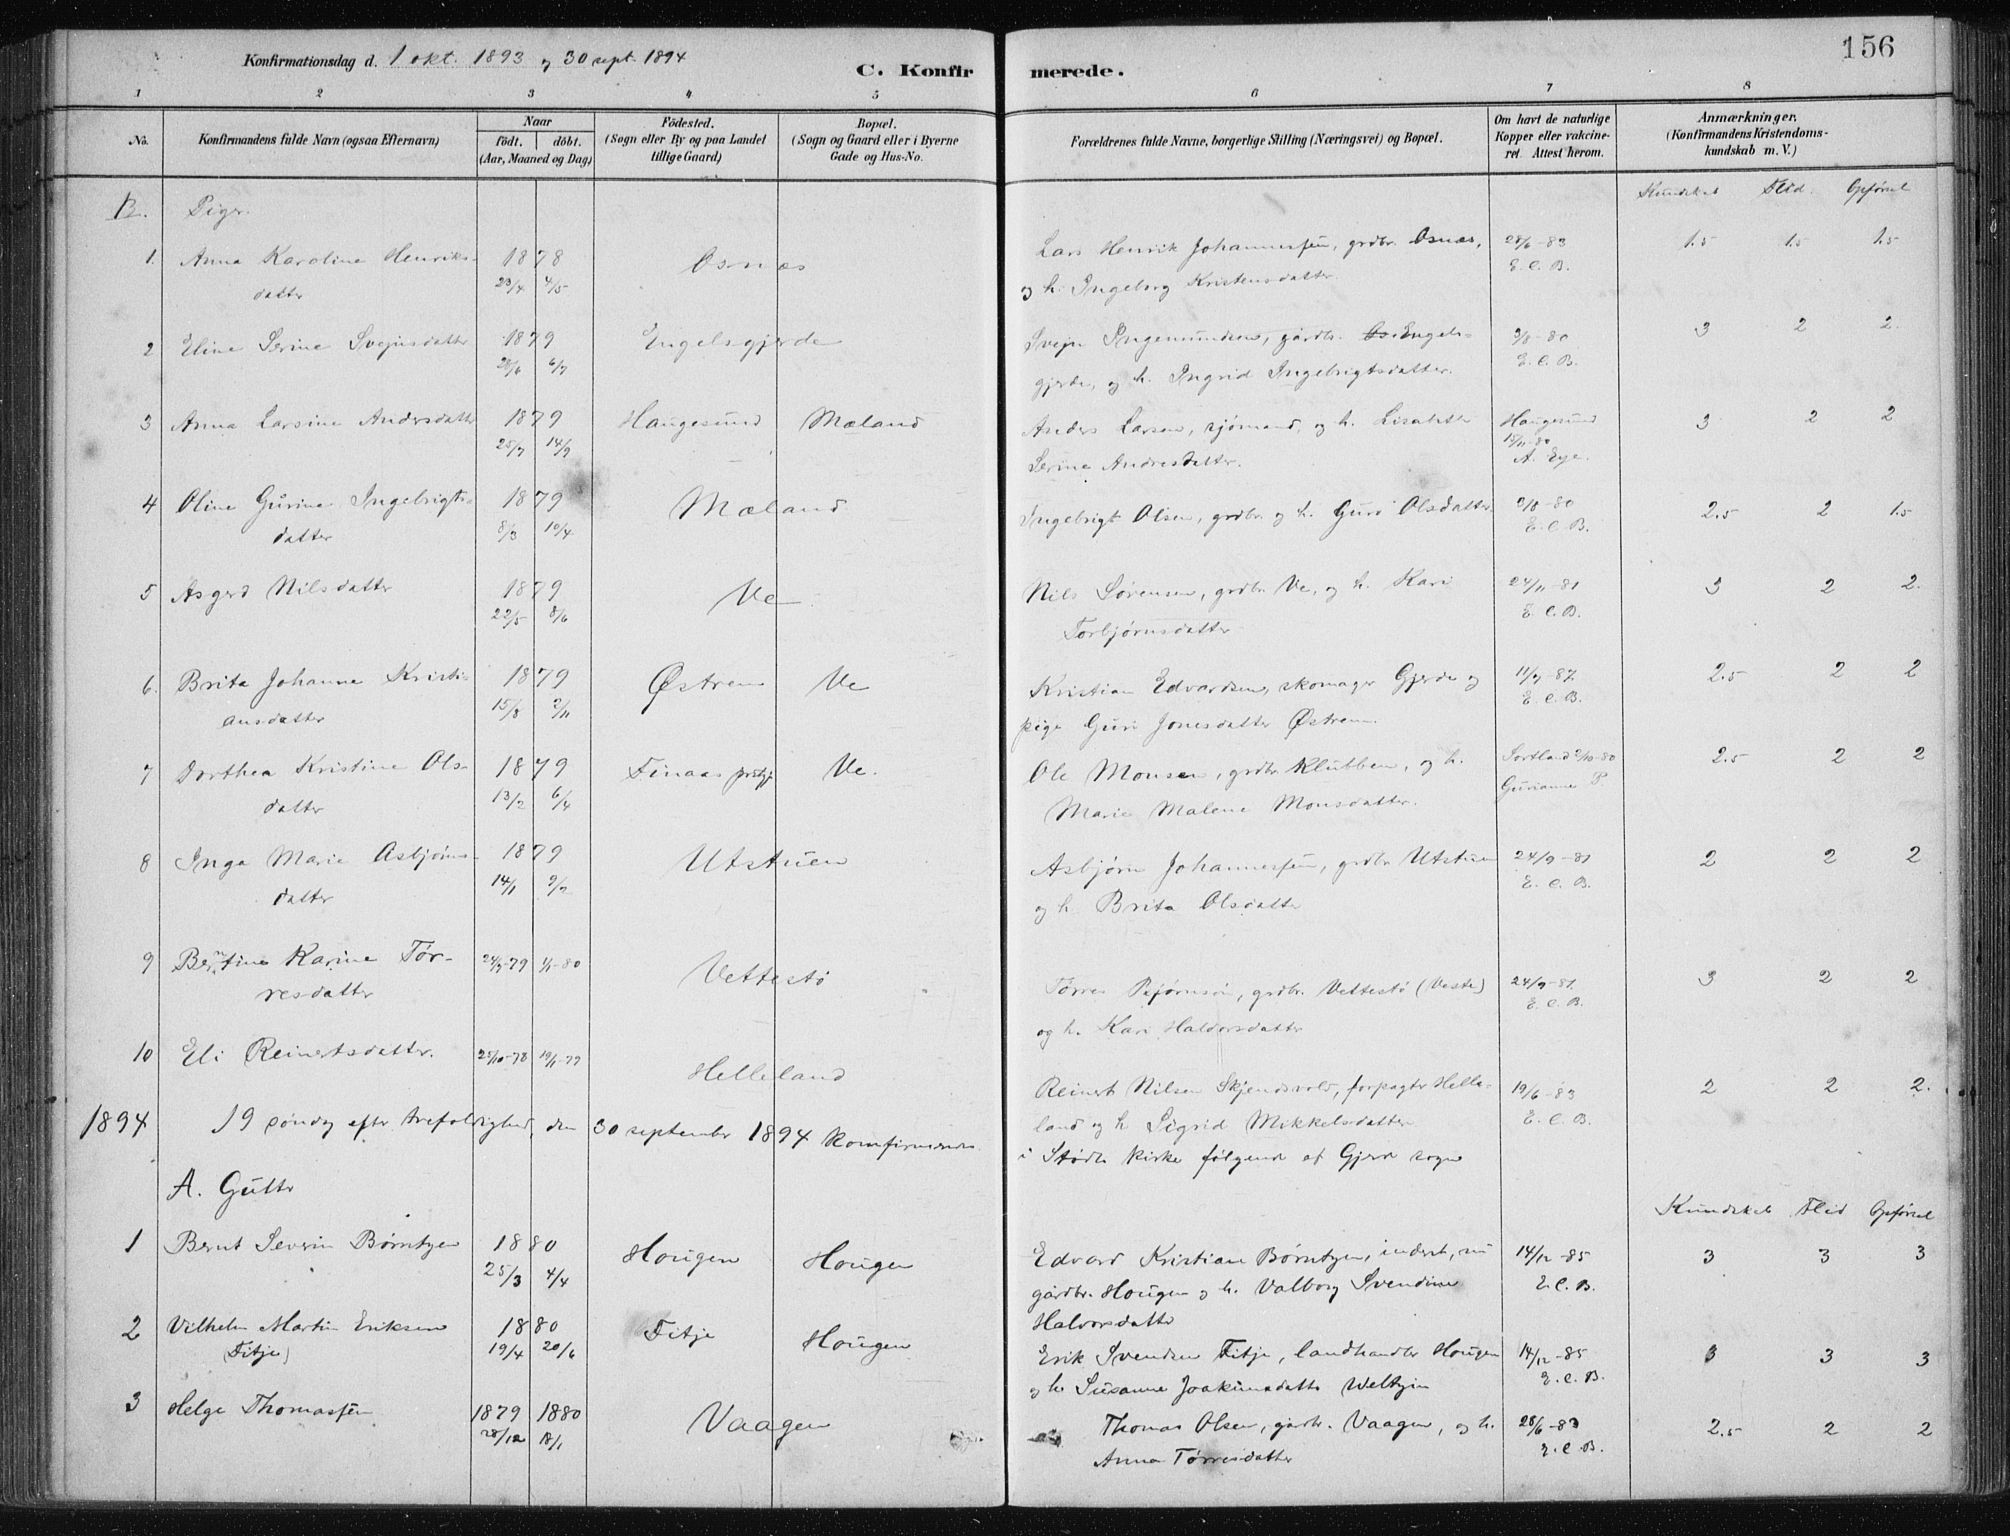 156
Konfirmationsdag d. 1 okt. 1893 og 30 sept. 1894
C. Konfirmerede.
1 2 3 4 5 6 7 8
No.
Konfirmandens fulde Navn (ogsaa Efternavn)
Naar
födt. döbt.
(Aar, Maaned og Dag)
Födested.
(Sogn eller By og paa Landet
tillige Gaard)
Bopæl.
(Sogn og Gaard eller i Byerne
Gade og Hus-No.
Forældrenes fulde Navne, borgerlige Stilling (Næringsvei) og Bopæl.
Om havt de naturlige
Kopper eller vakcine-
ret. Attest herom.
Anmærkninger.
(Konfirmandens Kristendoms-
kundskab m. V.)
B. Piger. Kundskab Flid. Opførsel
1. Anna Karoline Henriks- 1878 Osnes Lars Henrik Johannessen, grdbr. Osnes, 28/6-83 1.5 1.5 1.5
datter 23/4 4/5 og h. Ingeborg Kristensdatter. E.C.B.
2 Eline Serine Svejnsdatter 1879 Engelsgjerde Svejn Ingemundsen, gårdbr. Engels- 3/8-80 3 2 2.
28/6 6/7 gjerde, og h. Ingrid Ingebrigtsdatter. E.C.B.
3 Anna Larsine Andersdatter 1879 Haugesund Mæland Anders Larsen, sjømand, og h. Lisabeth Haugesund 3 2 2
25/7 14/9 Serine Andresdatter. A. Eye.
4 Oline Gurine Ingebrigts- 1879 Mæland Ingebrigt Olsen, grdbr. og h. Guri Olsdatter 3/8-80 2.5 2 1.5
datter 8/3 10/4 E.C.B.
5 Asgerd Nilsdatter 1879 Ve Nils Sørensen, grdbr. Ve, og h. Kari 24/11-81 3 2 2.
22/5 8/6 Torbjørnsdatter E.C.B.
6. Brita Johanne Kristi- 1879 Østrem Ve Kristian Edvardsen, skomager Gjerde og 11/7-87 2.5 2 2
ansdatter 15/8 2/11 pige Guri Jonesdatter Østrem. E.C.B.
7 Dorthea Kristine Ols- 1879 Finaas prstgj Ve. Ole Monsen, grdbr. Klubben, og h. Sortland 2/10-80 2.5 2 2
datter 13/2 6/4 Marie Malene Monsdatter. Gurianne P.
8 Inga Marie Asbjørns- 1879 Utstuen Asbjørn Johannessen, grdbr. Utstuen 24/9-81 2 2 2
datter 14/1 9/2 og h. Brita Olsdatter E.C.B.
9 Berntine Karine Tør- 24/7-79 1/1-80 Vettestø Tørres Bjørnsøn, grdbr. Vettestø (Veste) 24/9-81. 3 2 2
resdatter og h. Kari Haldorsdatter E.C.B.
10 Eli Reinertsdatter. 25/10-78 19/1-79 Helleland Reinert Nilsen Skjendsvold, forpagter Helle- 19/6-83 2 2 2.
land og h Sigrid Mikkelsdatter E.C.B.
1894 19 søndag efter trefoldighed, den 30 september 1894 konfirmeredes i Stødle kirke følgende af Gjerde sogn
A. Gutter Kundskab Flid Opførsel
1 Bernt Severin Børntzen 1880 Hougen Hougen Edvard Kristian Børntzen, inderst, nu 14/12-85 3 3 3
25/3 4/4 gårdbr. Hougen og h. Valborg Svendine E.C.B.
Halvorsdatter
2 Vilhelm Martin Eriksen 1880 Fitje Hougen Erik Svendsen Fitje, landhandler Hougen 14/12-85 3 3 3
(Fitje) 19/4 20/6 og h. Susanne Joakimsdatter Weltzin E.C.B.
3 Helge Thomassen 1879 1880 Vaagen Thomas Olsen, gårbr. Vaagen, og h. 28/6-83 2.5 2 2
28/12 18/1 Anna Tørresdatter E.C.B.